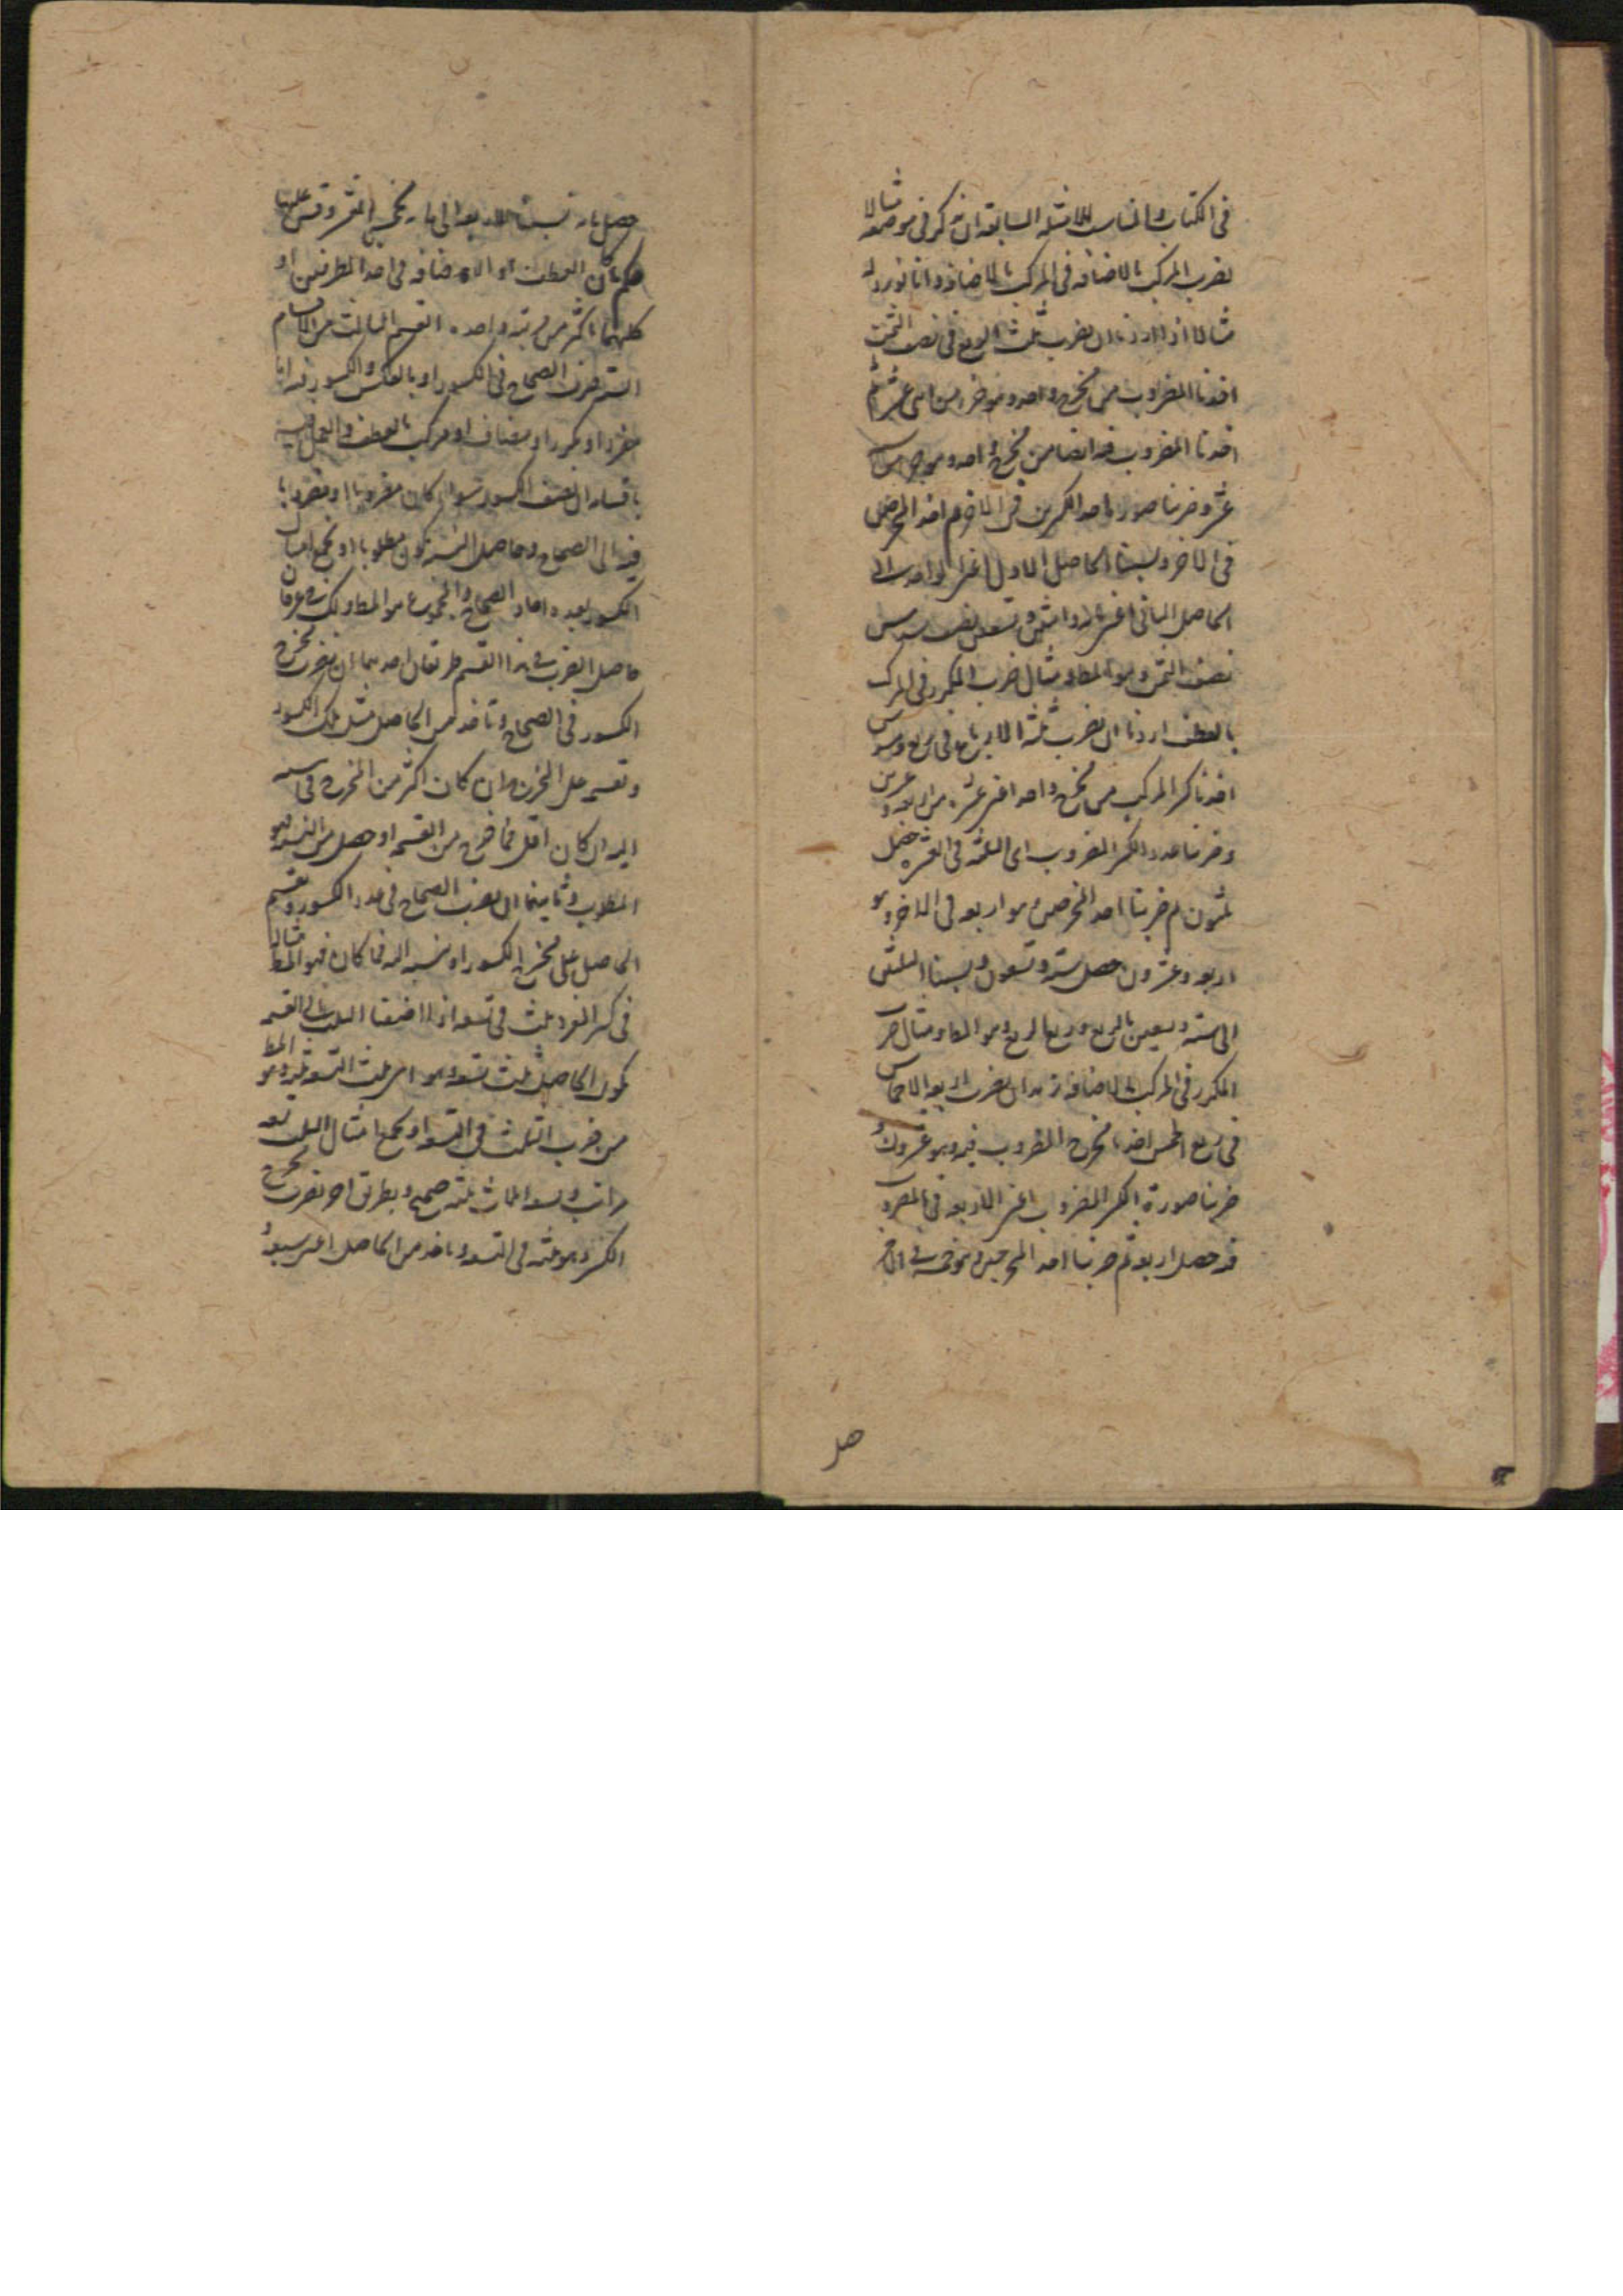 في الكتاب والمناسب للامثلة السابقة ان يذكر في موضعه مثالا
لضرب المركب بالاضافة في المركب بالاضافة وانا نورد له
مثالا اذا اردنا ان نضرب ثلث الربع في نصف الثمن
اخذنا المضروب من مخرج واحد وهو من اثنى عشر ثم
اخذنا المضروب فيه ايضا من مخرج واحد وهو
عشر وضربنا صورة احد الكسرين في الاخر ثم احد المخرجين
في الاخر ونسبنا الحاصل الاول اعني الواحد الى
الحاصل الثاني اعني مائة واثنين وتسعين نصف سدس
نصف الثمن وهو المط ومثال ضرب المكرر في المركب
بالعطف اردنا ان نضرب ثلثة الارباع في ربع وسدس
اخذنا كسر المركب من مخرج واحد اعني عشرة من اربعة وعشرين
وضربنا عدد الكسر المضروب اى الثلثة في العشرة حصل
ثلثون ثم ضربنا احد المخرجين وهو اربعة في الاخر وهو
اربعة وعشرون حصل ستة وتسعون ونسبنا الثلثين
الى ستة وتسعين بالربع وربع الربع وهو المط ومثال ضرب
المكرر في المركب بالاضافة نريد ان نضرب اربعة الاخماس
في ربع الخمس اخذنا مخرج المضروب فيه وهو عشرون و
ضربنا صورة الكسر المضروب اعني الاربعة في المضروب
فيه حصل اربعة ثم ضربنا احد المخرجين وهو خمسة في الاخر
حصل
حصل مائة نسبنا الاربعة الى مائة بخمس العشر وقس عليها
حكم ما كان العطف او الاضافة في احد الطرفين او
كليهما اكثر من مرتبة واحدة القسم الثالث من الاقسام
الستة ضرب الصحاح في الكسور او بالعكس والكسور فيه اما
مفرد او مكرر او مضاف او مركب بالعطف والعمل فيه
باقسامه ان نضيف الكسور سواء كان مضروبا او مضروبا
فيه الى الصحاح وحاصل النسبة يكون مطلوبا او نجمع امثال
الكسور بعدة احاد الصحاح والمجموع هو المط ولك في عرفان
حاصل الضرب في هذا القسم طريقان احدهما ان نضرب مخرج
الكسور في الصحاح وتاخذ من الحاصل مثل تلك الكسور
وتقسمه على المخرج ان كان اكثر من المخرج
اليه ان كان اقل فما خرج من القسمة او حصل من النسبة فهو
المطلوب وثانيهما ان نضرب الصحاح في عدد الكسور ونقسم
الحاصل على مخرج الكسور او ننسبه اليه فما كان فهو المط مثاله
في كسر المفرد ثلث في تسعة اذا اضفنا الثلث الى التسعة
يكون الحاصل ثلث تسعة وهو اى ثلث التسعة ثلثة وهو المط
من ضرب الثلث في التسعة او نجمع امثال الثلث تسع
مراتب وتسعة اثلاث ثلثة صحيح وبطريق اخر نضرب مخرج
الكسر وهو ثلثة في التسعة وناخذ من الحاصل اعني سبعة و